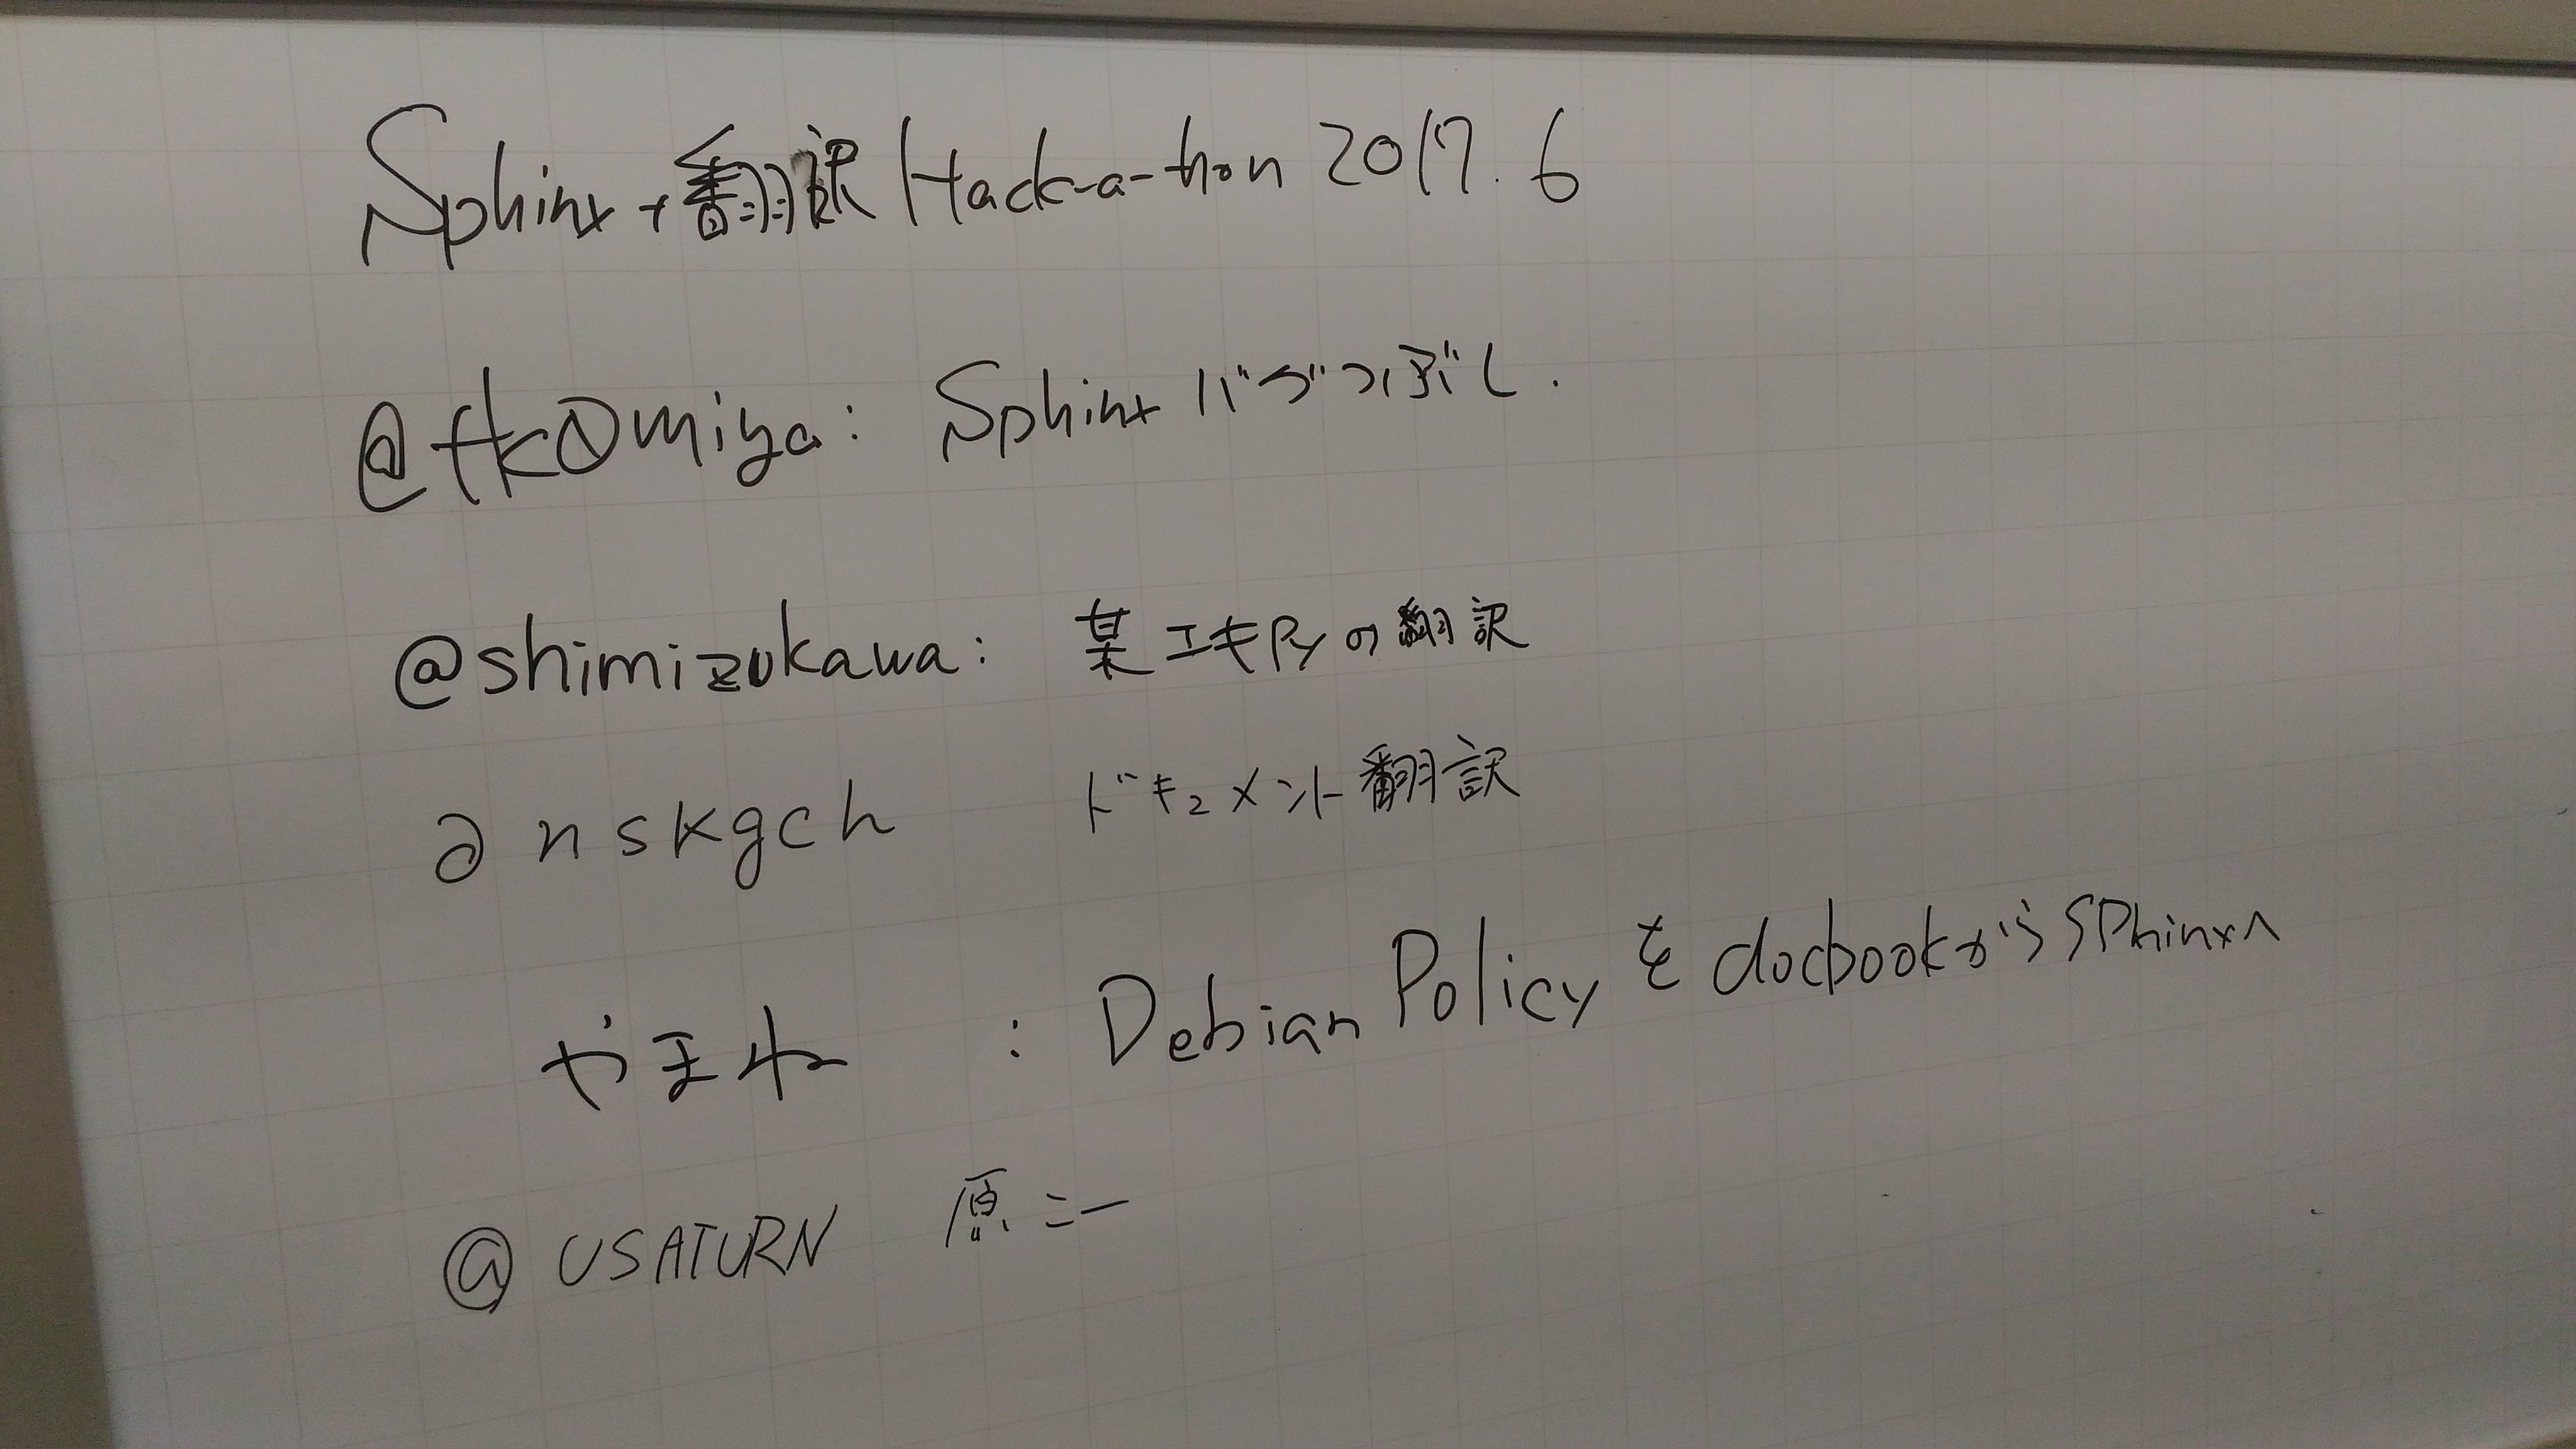 Sphinx + 翻訳 Hack-a-thon 2017.6
@tk0miya: Sphinx バグつぶし.
@shimizukawa: 某エキPyの翻訳
@nskgch ドキュメント翻訳
やまね : Debian Policy を docbookから Sphinxへ
@USATURN 原ニー